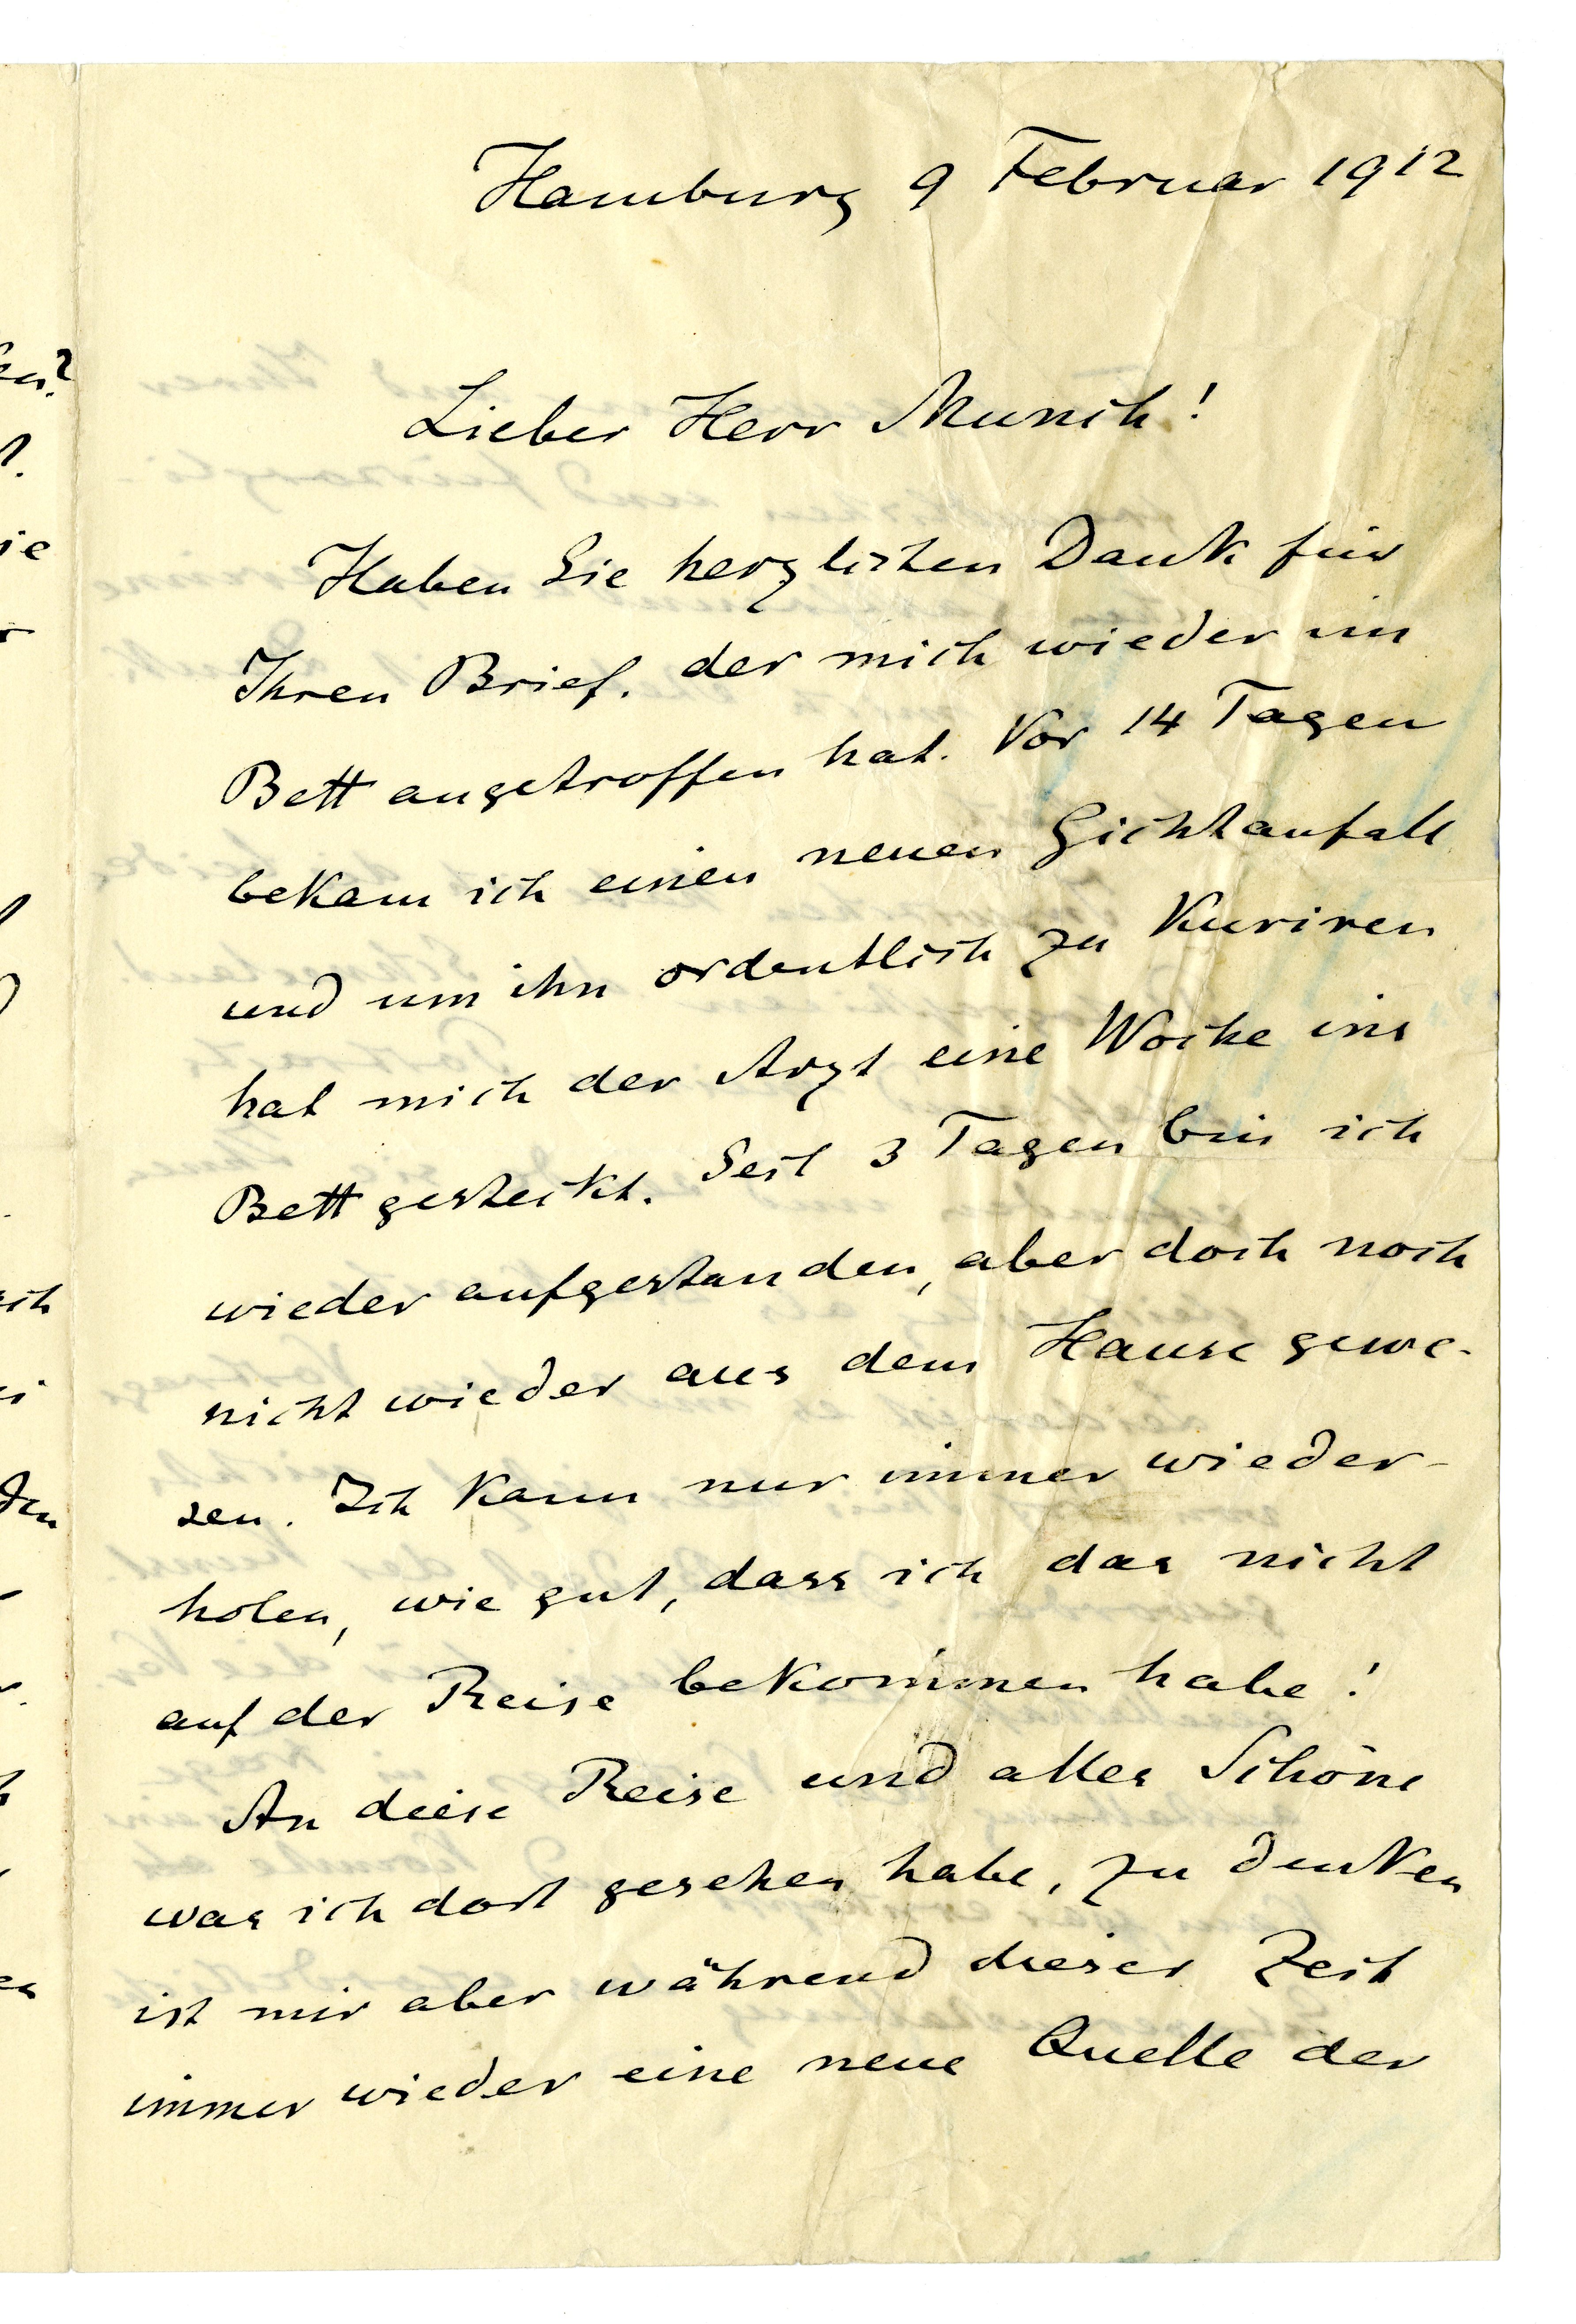 Hamburg 9 Februar 1912
Lieber Herr Munch!
Haben Sie herzlichen Dank für
Ihren Brief. der mich wieder im
Bett angetroffen hat. Vor 14 Tagen
bekam ich einen neuen Gichtanfall
und um ihn ordentlich zu kuriren
hat mich der Arzt eine Woche ins
Bett gesteckt. Seit 3 Tagen bin ich
wieder aufgestanden, aber doch noch
nicht wieder aus dem Hause gewe-
sen. Ich kann nur immer wieder-
holen, wie gut, dass ich das nicht
auf der Reise bekommen habe!
An diese Reise und alles Schöne
was ich dort gesehen habe, zu denken
ist mir aber während dieser Zeit
immer wieder eine neue Quelle der